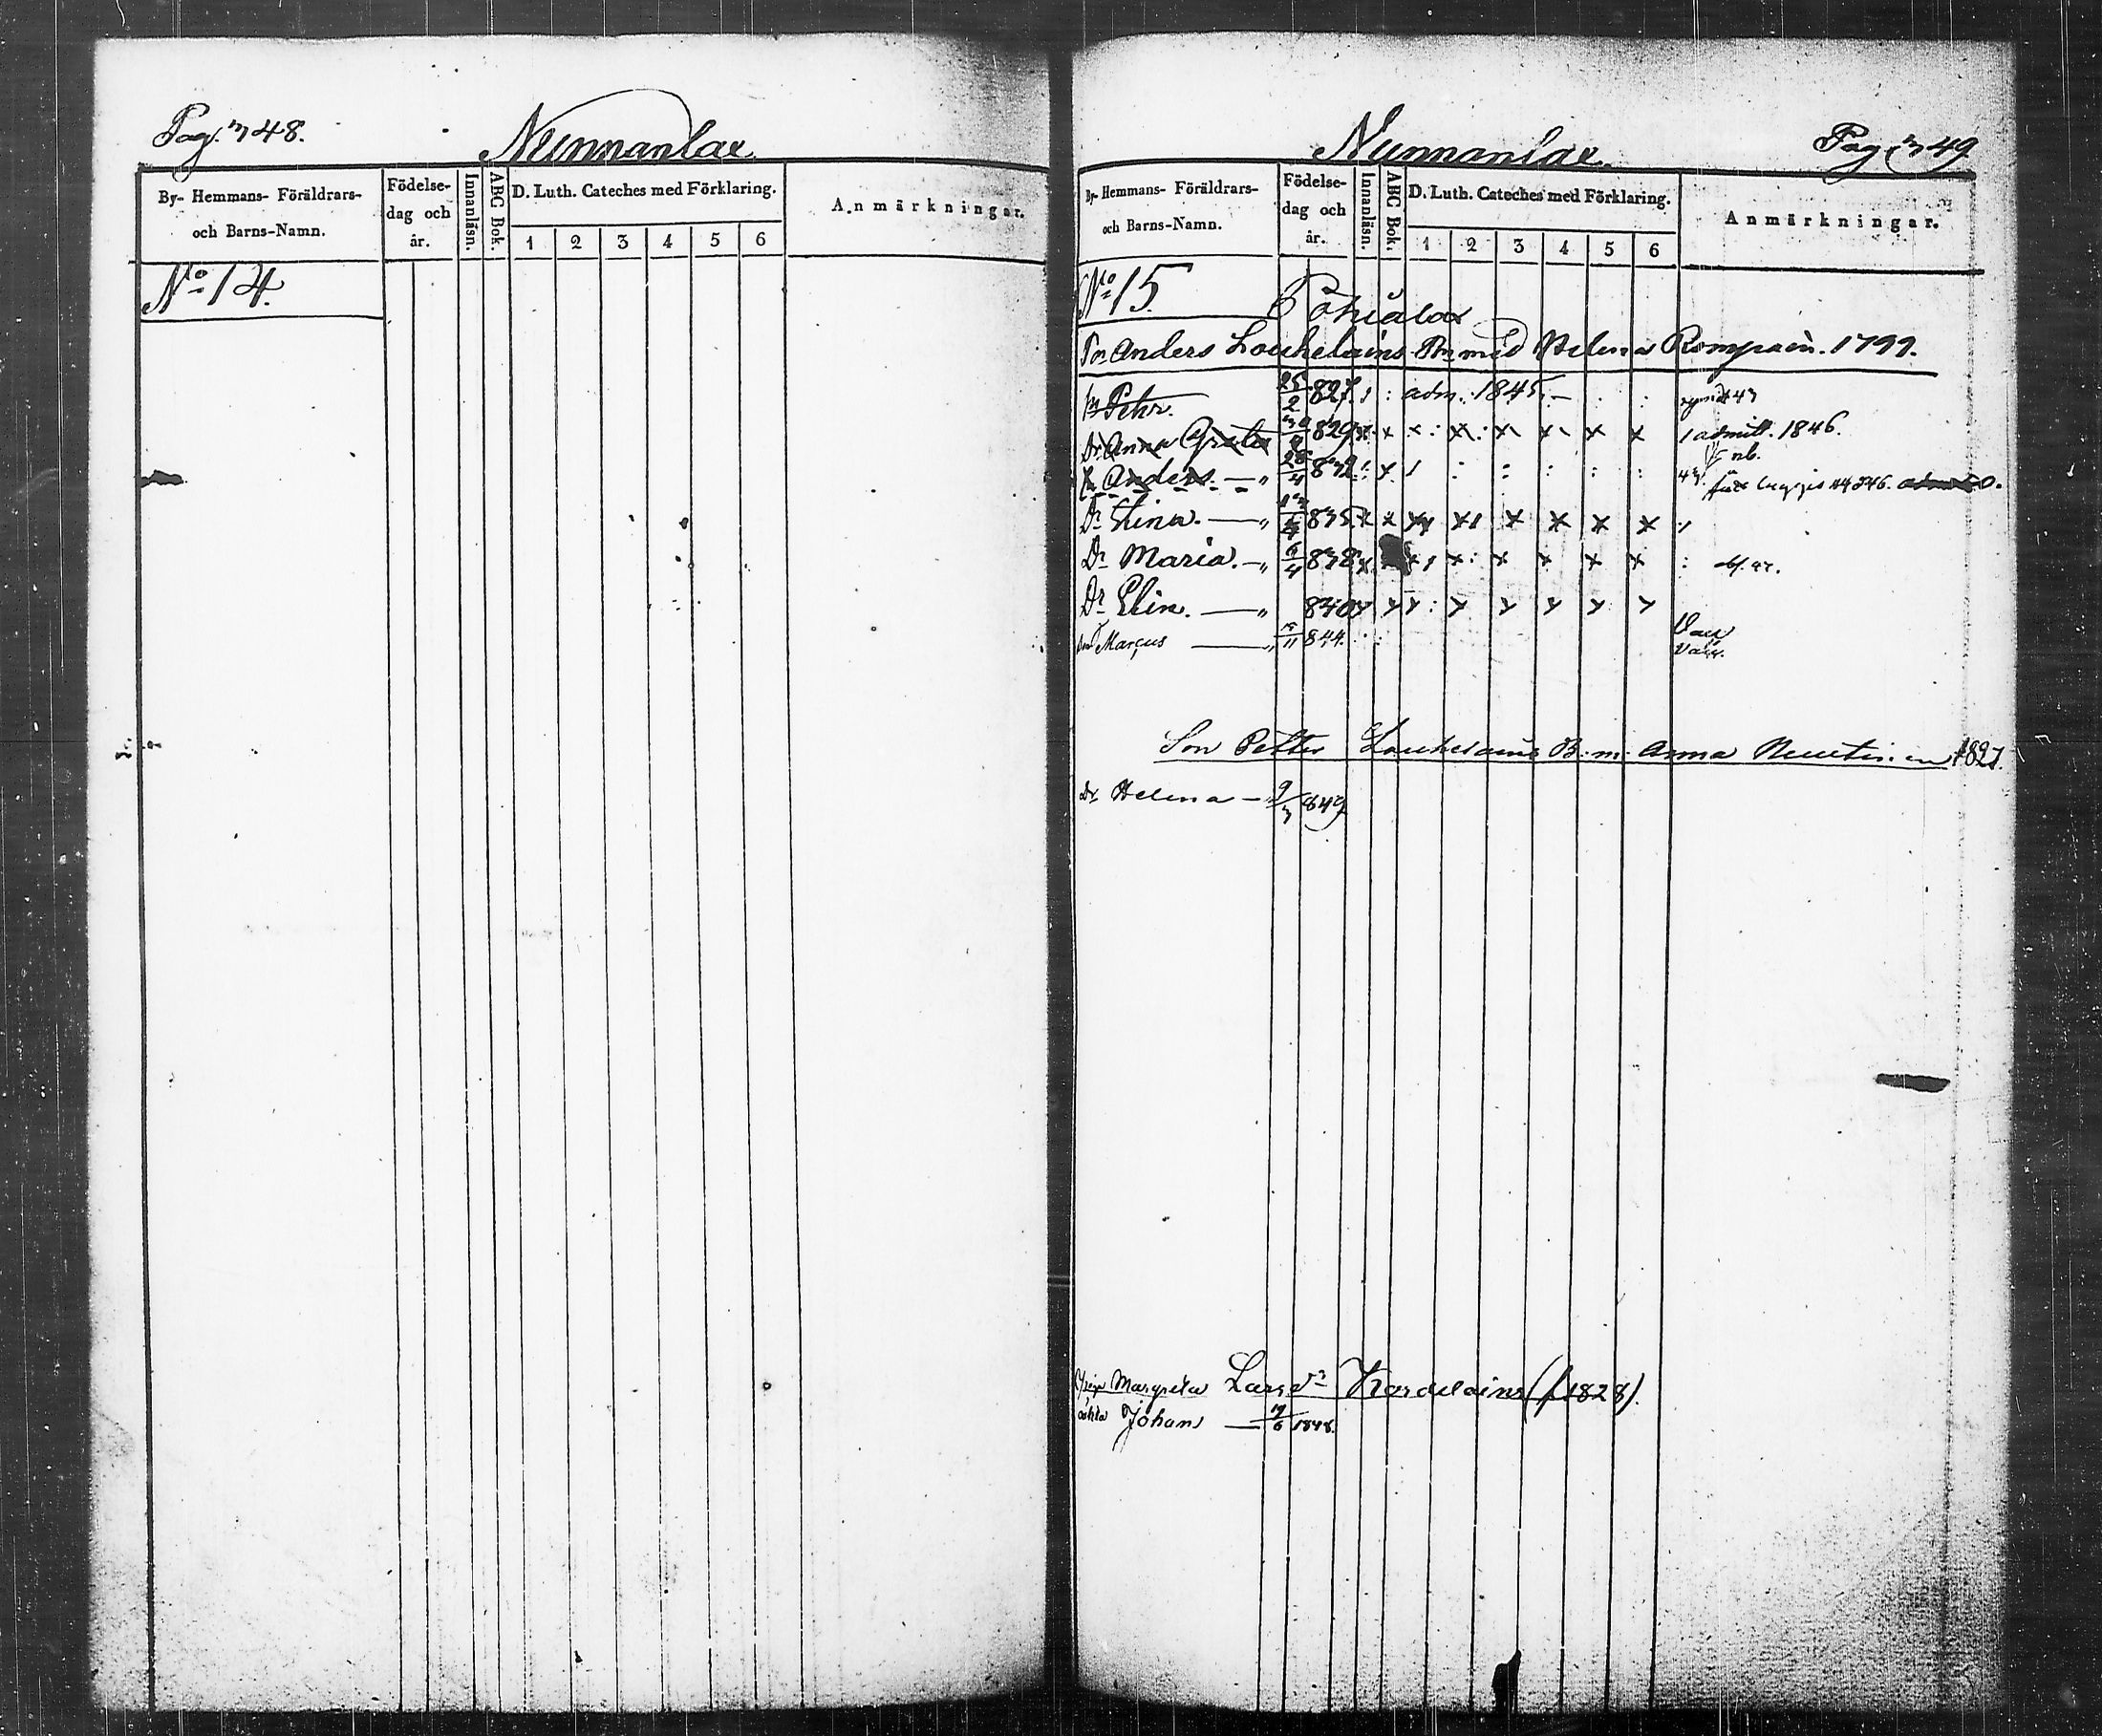 Pag. 348.
Nunnanlax
By- Hemmans- Föräldrars-
och Barns-Namn.
Födelse-
dag och
år.
Innanläsn.
ABC Bok.
D. Luth. Cateches med Förklaring.
1 2 3 4 5 6
Anmärkningar.
No 14.
Nunnanlax.
Pag. 349
By- Hemmans- Föräldrars-
och Barns-Namn.
Födelse-
dag och
år.
Innanläsn.
ABC Bok.
D. Luth. Cateches med Förklaring.
1 2 3 4 5 6
Anmärkningar.
No 15.
Anders Louhelains med Helena Rompain. 1799.
Pehr. 25/2 827. adm. 1845.
Dr Anna Greta 829 x x x x x x x admitt. 1846.
Anders. — " 28/4 832 nb.
Dr Stina. — " 835 x x x x x x x x
Dr Maria. — " 6/4 838 x x x x x x x
Dr Elin. — " 840 x x x x x x x x
Marcus — " 844.
Son Petter Louhelains B. m. Anna 1827.
Dr Helena — 9/3 849
Margreta Lars dr Kardelains (f 1828).
oäkta Johan — 19/6 1848.